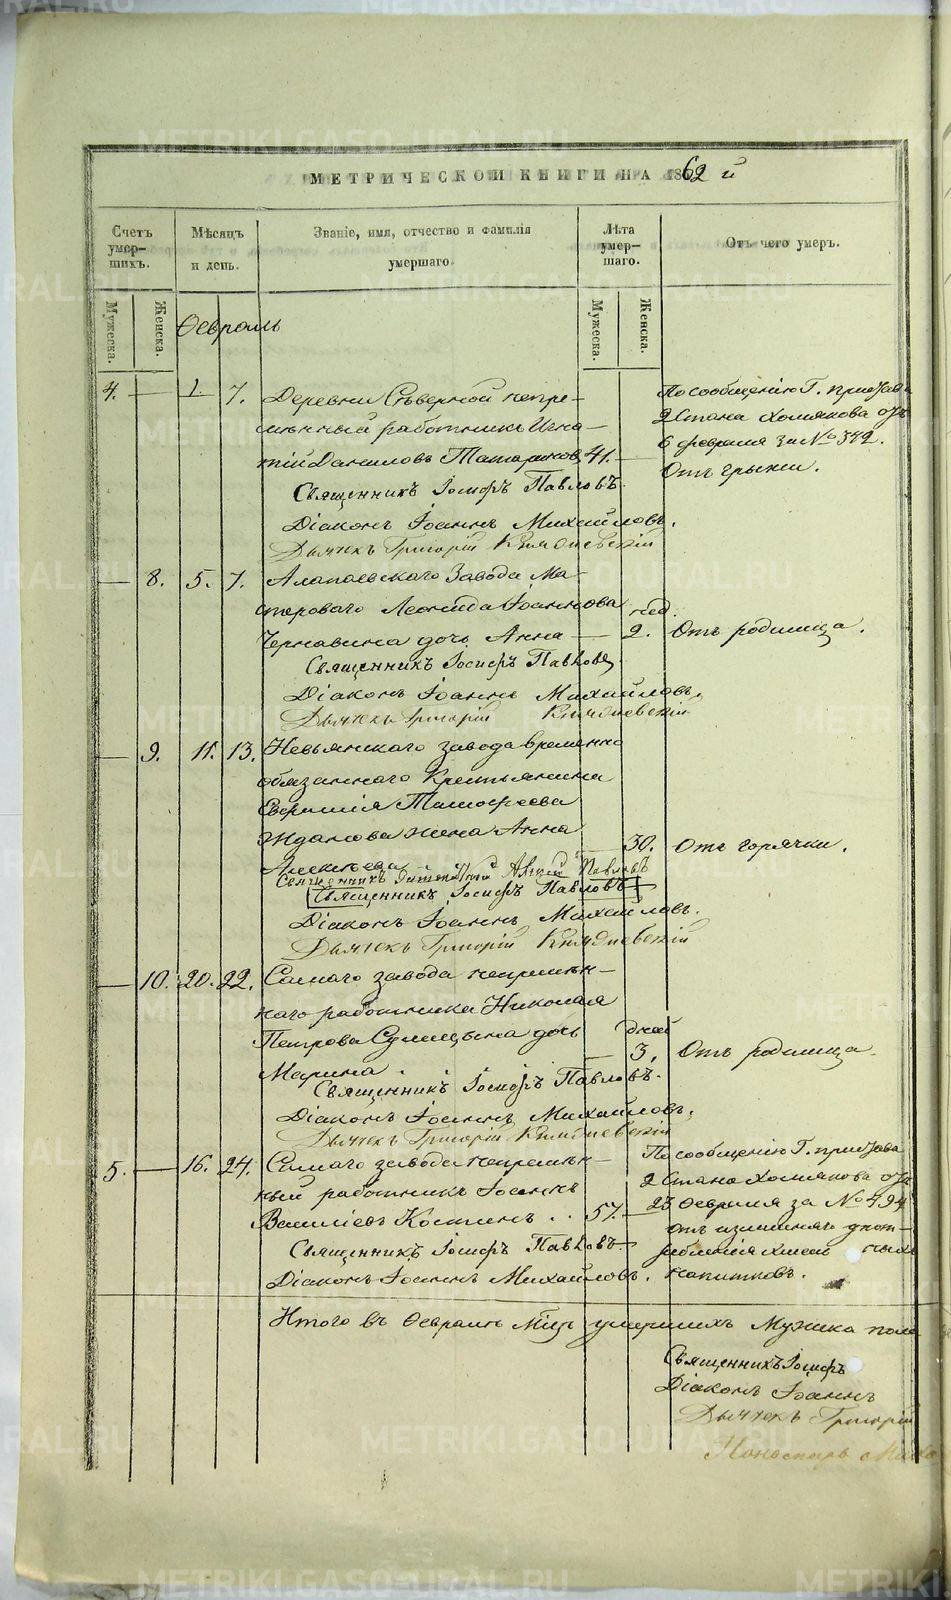 МЕТРИЧЕСКОЙ КНИГИ НА 1862 й
Счетъ умер-шихъ.
Мѣсяцъ и день.
Званіе, имя, отчество и фамилія умершаго.
Лѣта умер-шаго.
Отъ чего умеръ.
Мужеска.
Женска.
Мужеска.
Женска.
Февраль
4. — 1. 7. Деревни Сѣверной непре- По сообщенію Г. пристава
мѣнный работникъ Игна- 2 Стана Хомякова отъ
6 февраля за № 342.
тій Даниловъ Татариновъ 41. — Отъ грыжи.
Священникъ Іосифъ Павловъ.
Діаконъ Іоаннъ Михайловъ.
Дьячекъ Григорій
— 8. 5. 7. Алапаевскаго Завода Ма-
стероваго Леонида Іоаннова нед.
Чернавина дочь Анна — 2. Отъ родимца.
Священникъ Іосифъ Павловъ.
Діаконъ Іоаннъ Михайловъ.
Дьячекъ Григорій
— 9. 11. 13. Невьянскаго завода временно
обязаннаго Крестьянина
Евфимія Тимофеева
Жданова жена Анна
30. Отъ горячки.
Алексѣева
Священникъ Павловъ
Священникъ Іосифъ Павловъ
Діаконъ Іоаннъ Михайловъ.
Дьячекъ Григорій
— 10. 20. 22. Самаго завода непремѣн-
наго работника Николая
Петрова Сулицына дочь дней
Марина — 3. Отъ родимца.
Священникъ Іосифъ Павловъ.
Діаконъ Іоаннъ Михайловъ.
Дьячекъ Григорій
5. — 16. 24. Самаго завода непремѣн- По сообщенію Г. пристава
ный работникъ Іоаннъ 2 Стана Хомякова отъ
Василіевъ Костинъ .. 57. — 23 Февраля за № 494
отъ излишняго упот-
Священникъ Іосифъ Павловъ. ребленія хмельныхъ
Діаконъ Іоаннъ Михайловъ. напитковъ.
Итого въ Февралѣ Мцѣ умершихъ Мужска пола
Священникъ Іосифъ
Діаконъ Іоаннъ
Дьячекъ Григорій
Пономарь
METRIKI.GASO-URAL.RU